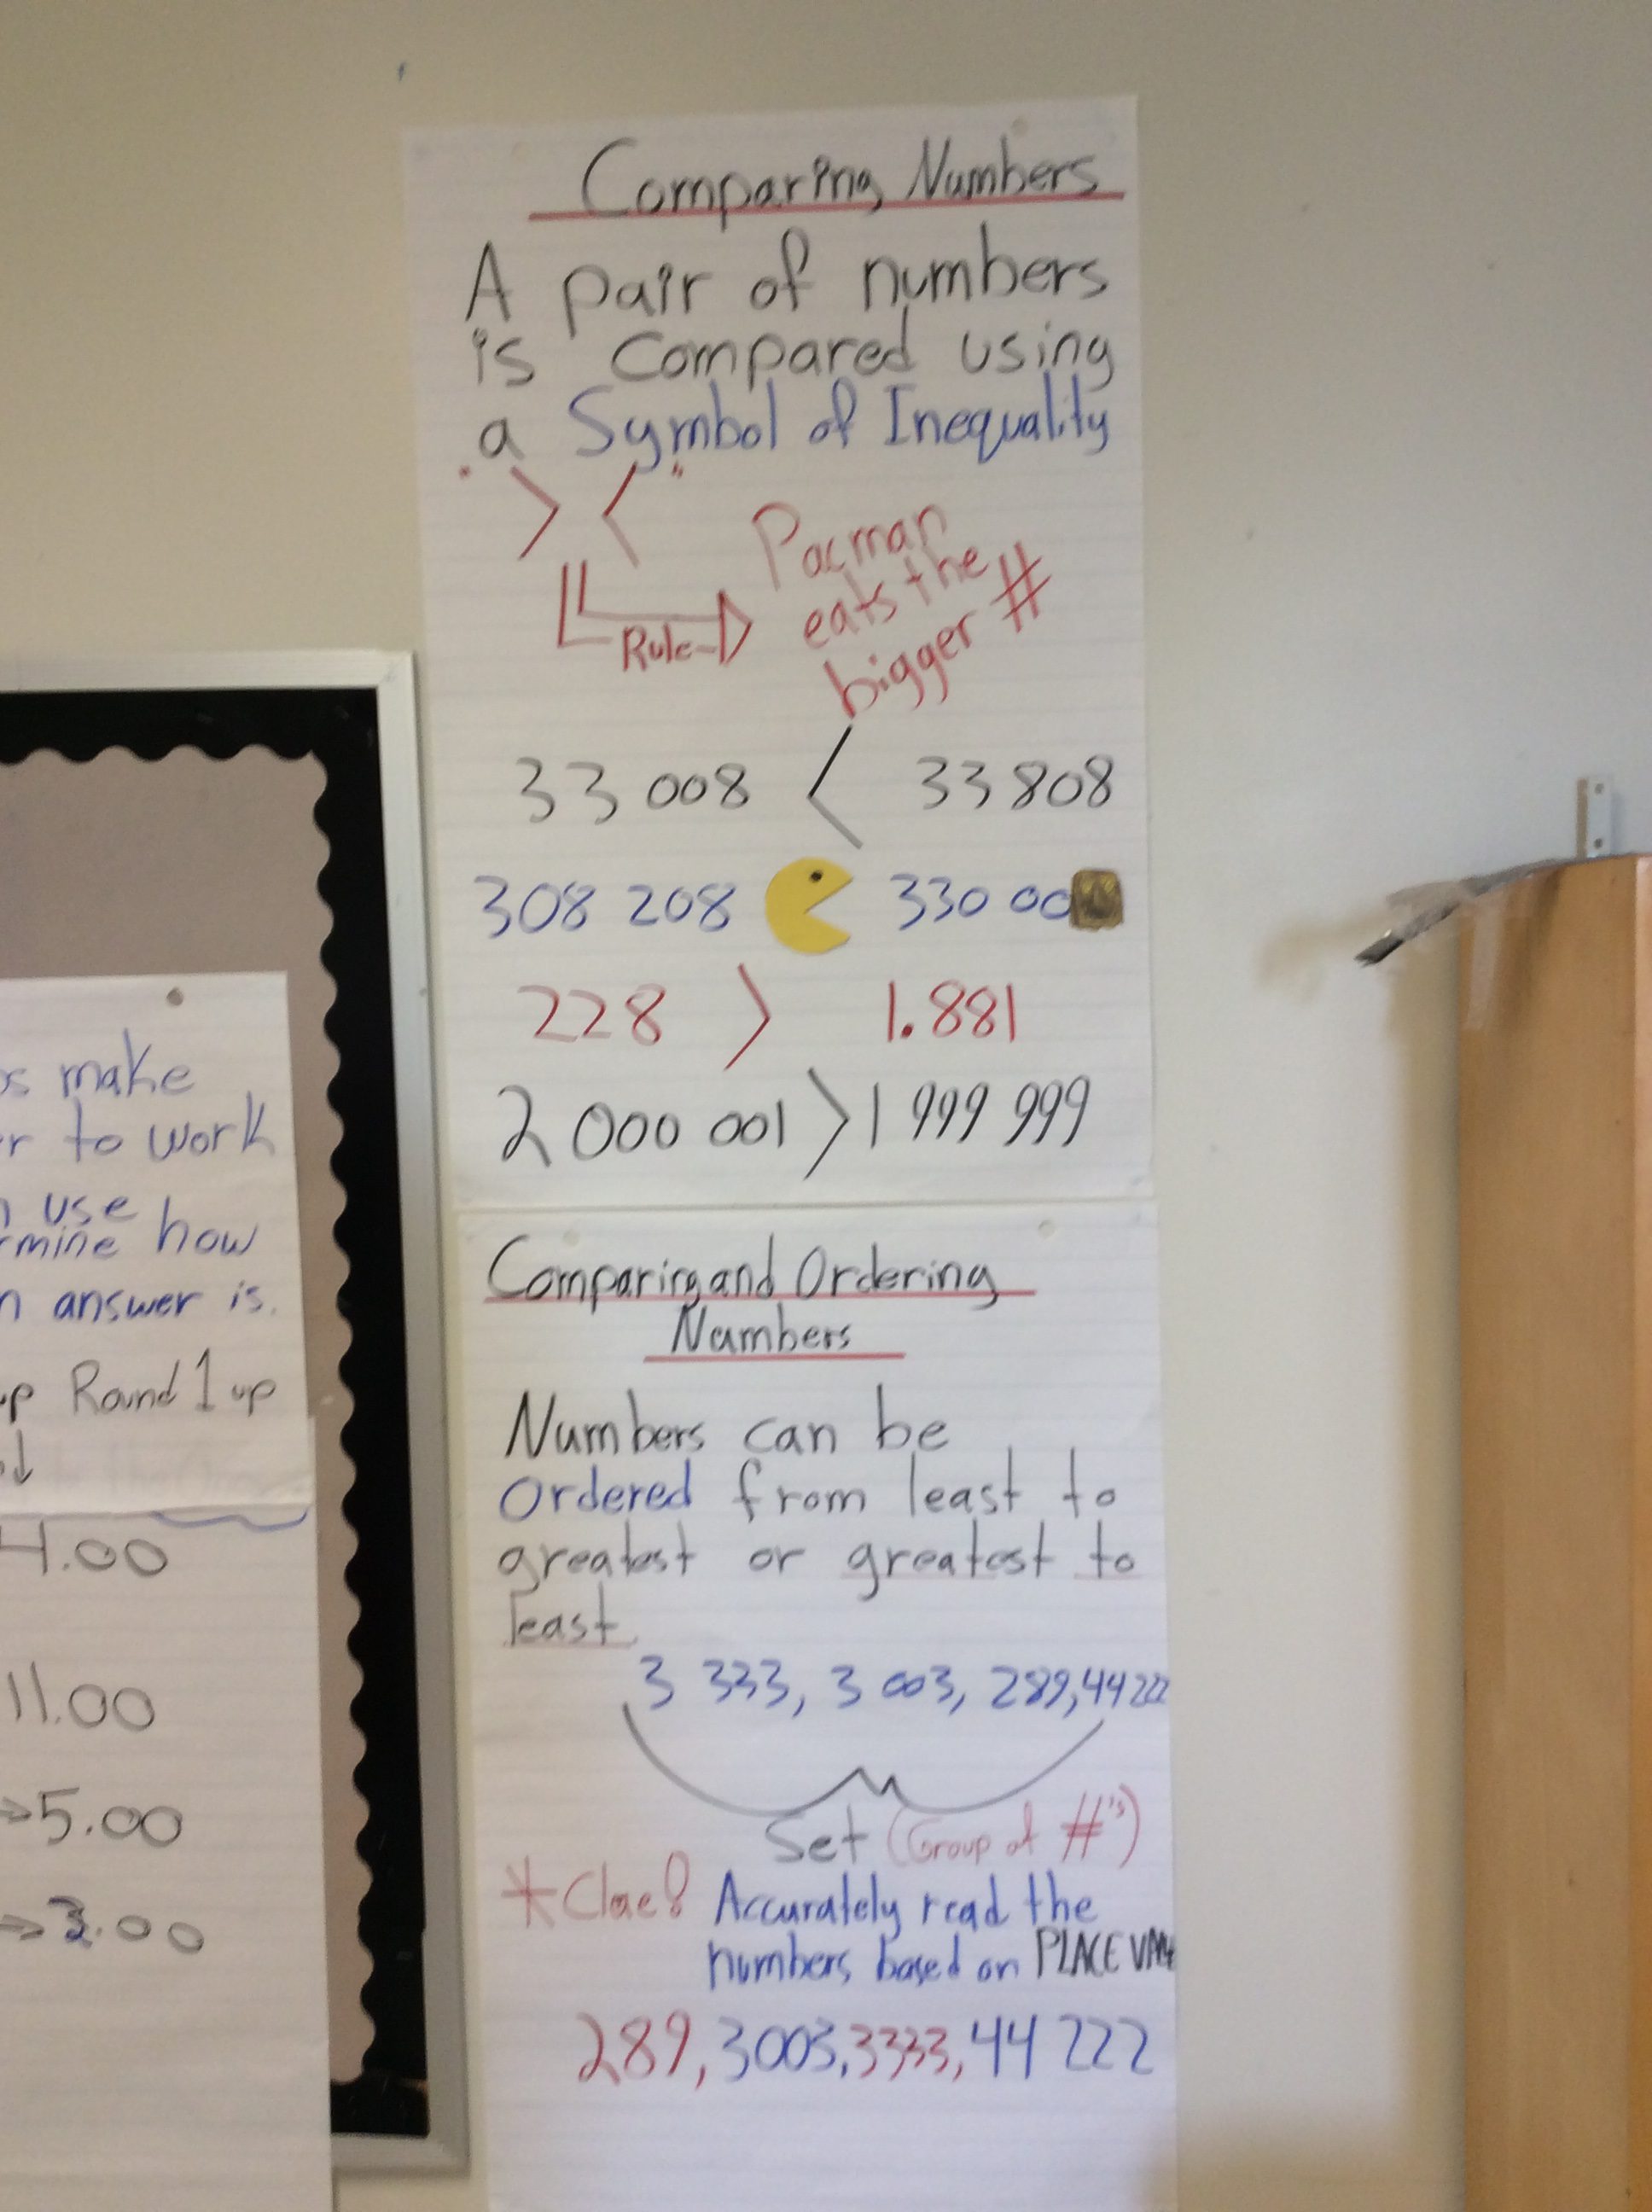 Comparing Numbers
A pair of numbers
is compared using
a Symbol of Inequality
" > < "
Rule
Pacman
eats the
bigger #
33 008 < 33 808
308 208 330 00
228 > 1.881
2 000 001 > 1 999 999
Comparing and Ordering
Numbers
Numbers can be
Ordered from least to
greatest or greatest to
least.
3 333, 3 003, 289, 44 222
Set (Group of #'s)
*Clae! Accurately read the
numbers based on PLACE
289, 3003, 3333, 44 222
make
to work
use
how
answer is.
Round 1 up
4.00
11.00
→5.00
→3.00